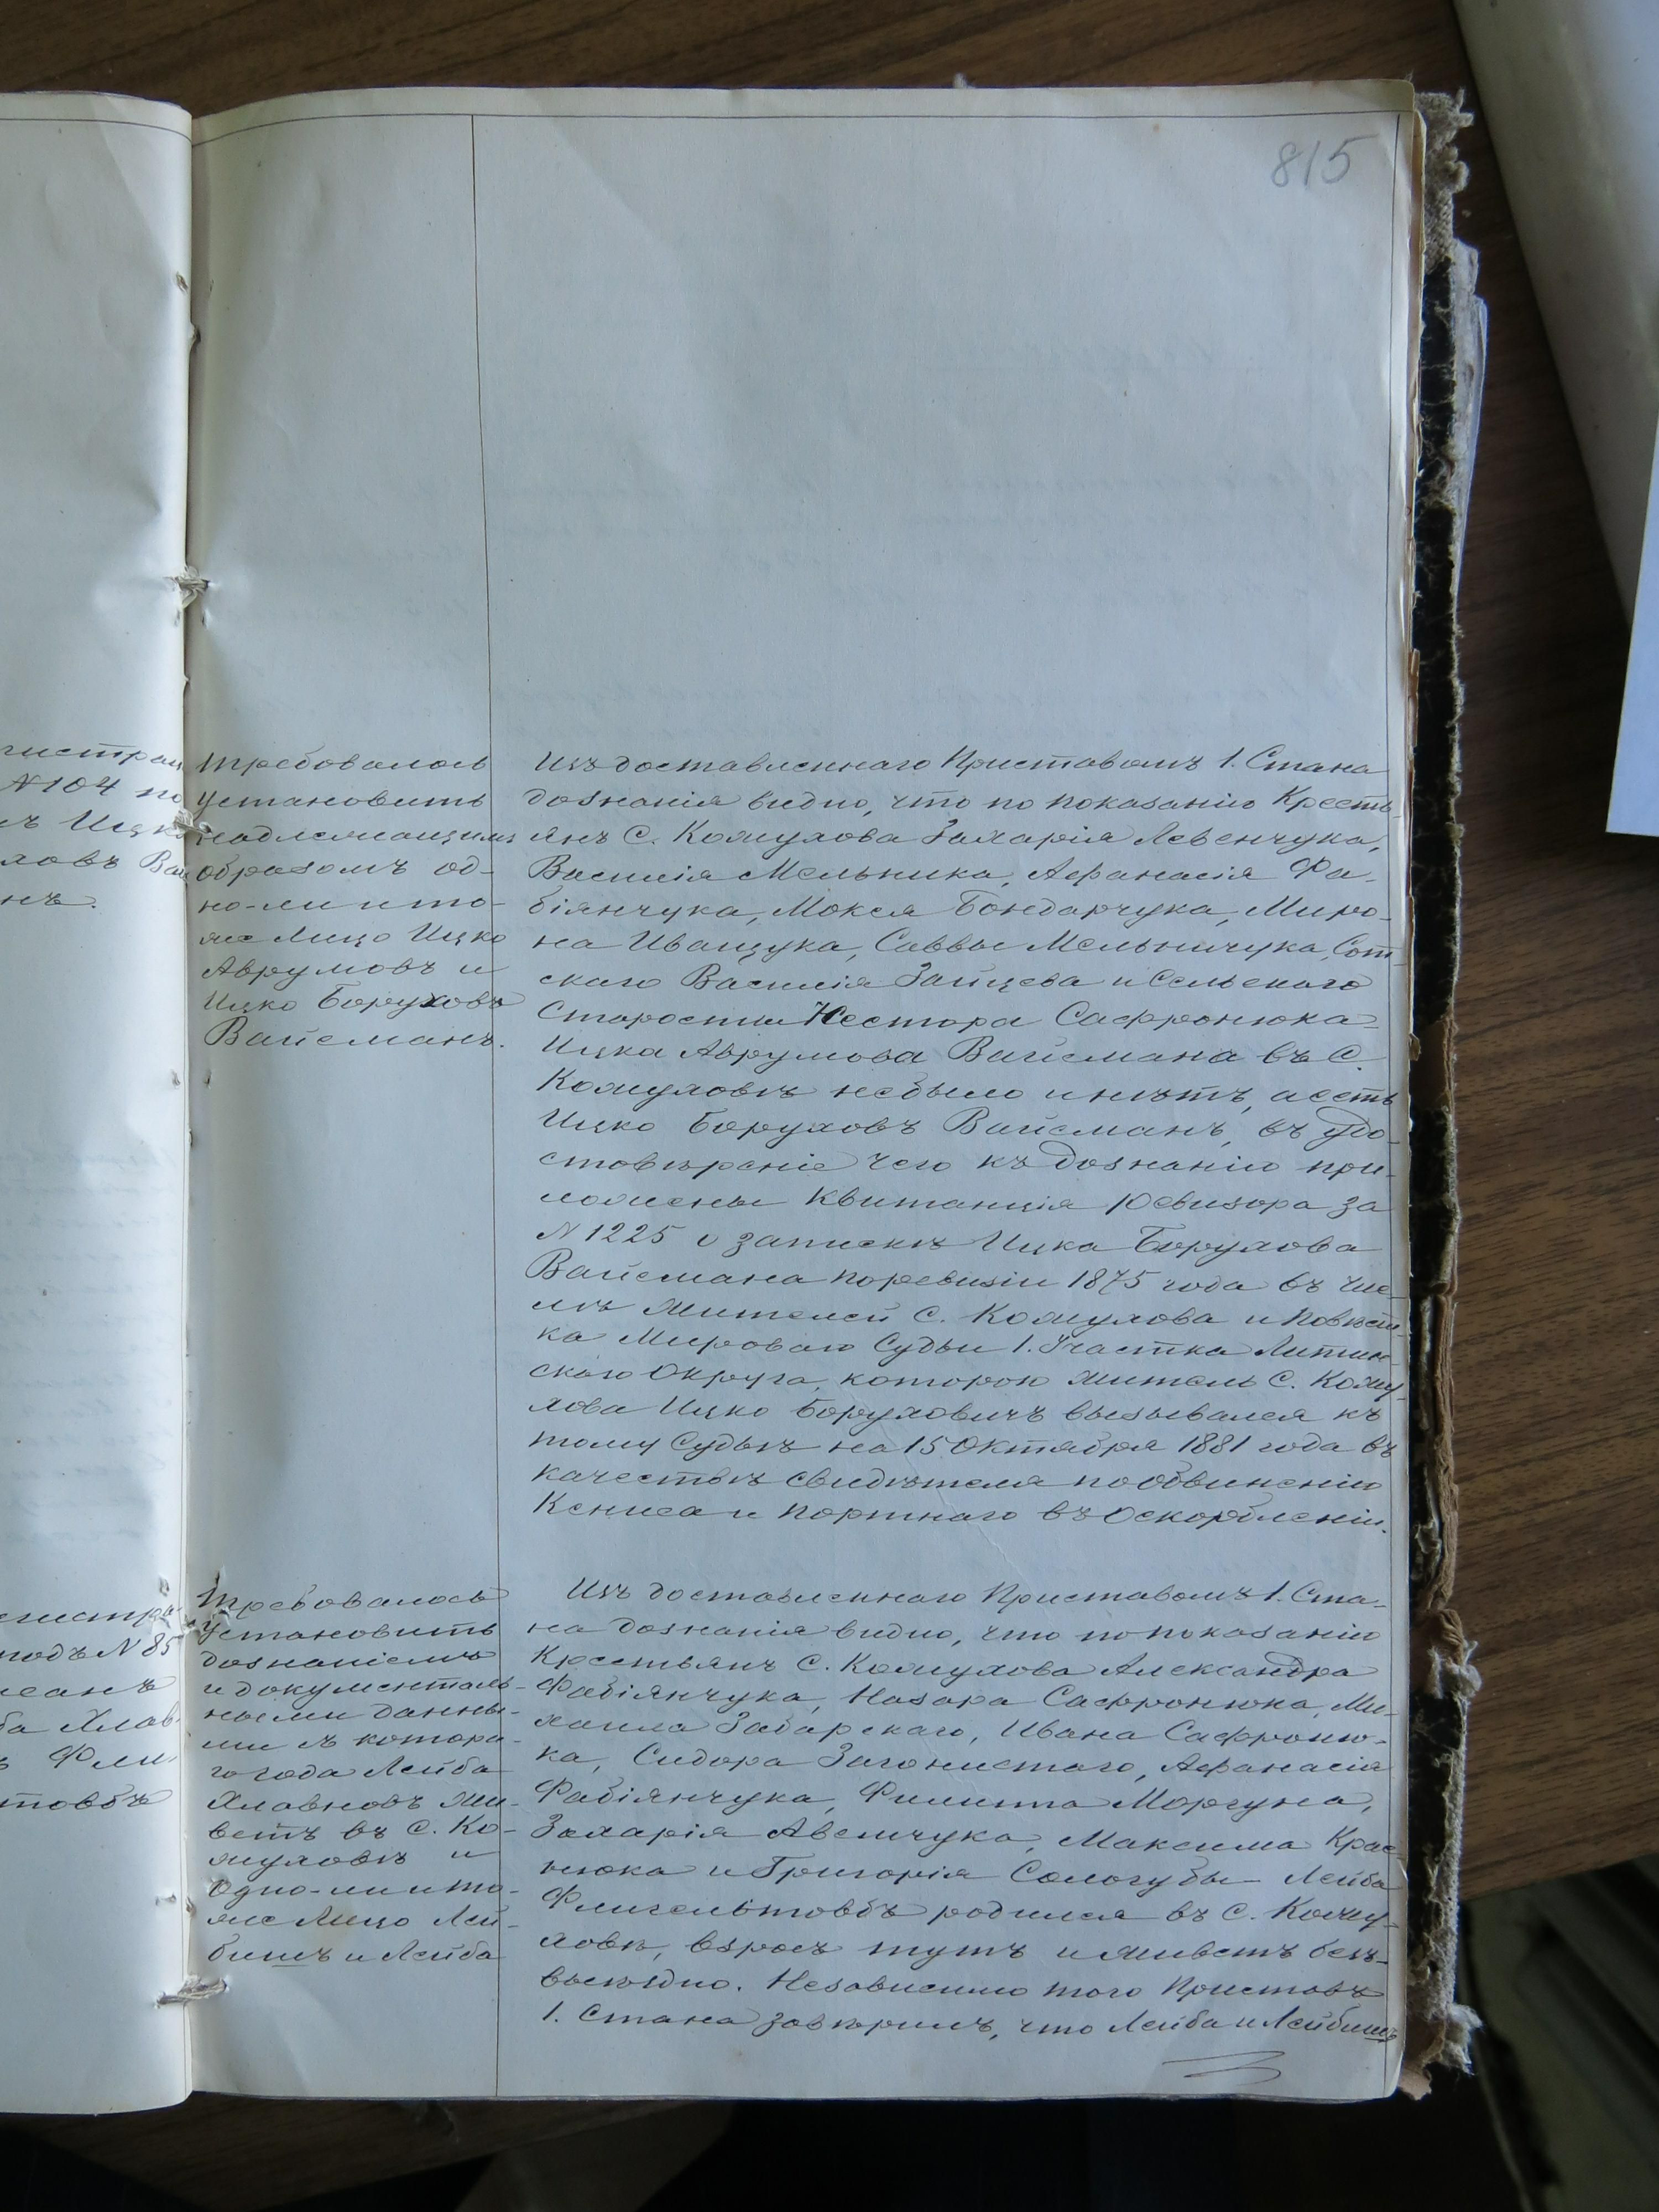 815
гистрац
№ 104 по
ъ Ицко
ловъ Вай
нъ.
Требовалось
установить
надлежащимъ
образомъ од-
но-ли и то-
же лицо Ицко
Аврумовъ и
Ицко Боруховъ
Вайсманъ.
Изъ доставленнаго Приставомъ 1. Стана
дознанія видно, что по показанію Кресть-
янъ С. Кожухова Захарія Левенчука,
Василія Мельника, Афанасія Фа-
біянчука, Мокея Бондарчука, Миро-
на Иващука, Саввы Мельничука, Сот-
скаго Василія Зайцева и Сельскаго
Старосты Нестора Сафронюка
Ицка Аврумова Вайсмана въ С.
Кожуховѣ небыло и нѣтъ, а есть
Ицко Боруховъ Вайсманъ, въ удо-
стовѣреніе чего къ дознанію при-
ложены квитанція Ревизора за
№ 1225 о запискѣ Ицка Борухова
Вайсмана по ревизіи 1875 года въ чис-
лѣ жителей С. Кожухова и повѣст-
ка Мироваго Судьи 1. Участка Литин-
скаго Округа, которою житель С. Кожу-
хова Ицко Боруховичъ вызывался къ
тому Судьѣ на 15 Октября 1881 года въ
качествѣ свидѣтеля по обвиненію
Кениса и Портнаго въ оскорбленіи.
гистра
подъ № 85
санъ
ба Хлав
ъ Фли
товбъ
Требовалось
установить
дознаніемъ
и документаль-
ными данны-
ми съ котора-
го года Лейба
Хлавновъ жи-
ветъ въ С. Ко-
жуховѣ и
одно-ли и то-
же лицо Лей-
бишъ и Лейба
Изъ доставленнаго Приставомъ 1. Ста-
на дознанія видно, что по показанію
Крестьянъ С. Кожухова Александра
Фабіянчука, Назара Сафронюка, Ми-
хаила Забарскаго, Ивана Сафроню-
ка, Сидора Загонистаго, Афанасія
Фабіянчука, Филиппа Моргуна,
Захарія Авенчука, Максима Крас-
нюка и Григорія Сологубы Лейба
Флигельтовбъ родился въ С. Кожу-
ховѣ, взросъ тутъ и живетъ безъ-
выѣздно. Независимо того Приставъ
1. Стана завѣрилъ, что Лейба и Лейбишъ